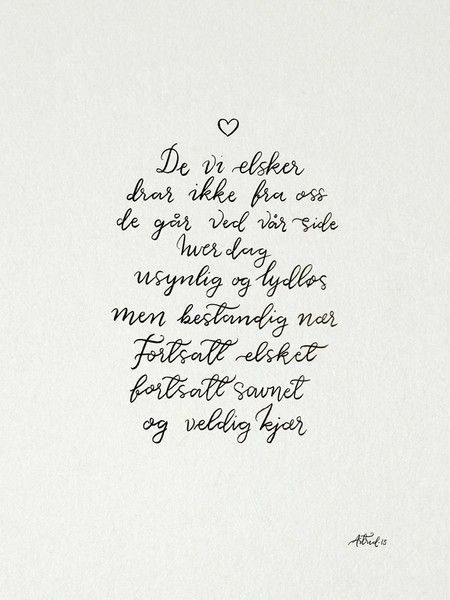 De vi elsker
drar ikke fra oss
de går ved vår side
hver dag
usynlig og lydløs
men bestandig nær
Fortsatt elsket
fortsatt savnet
og veldig kjær
Astrid.15